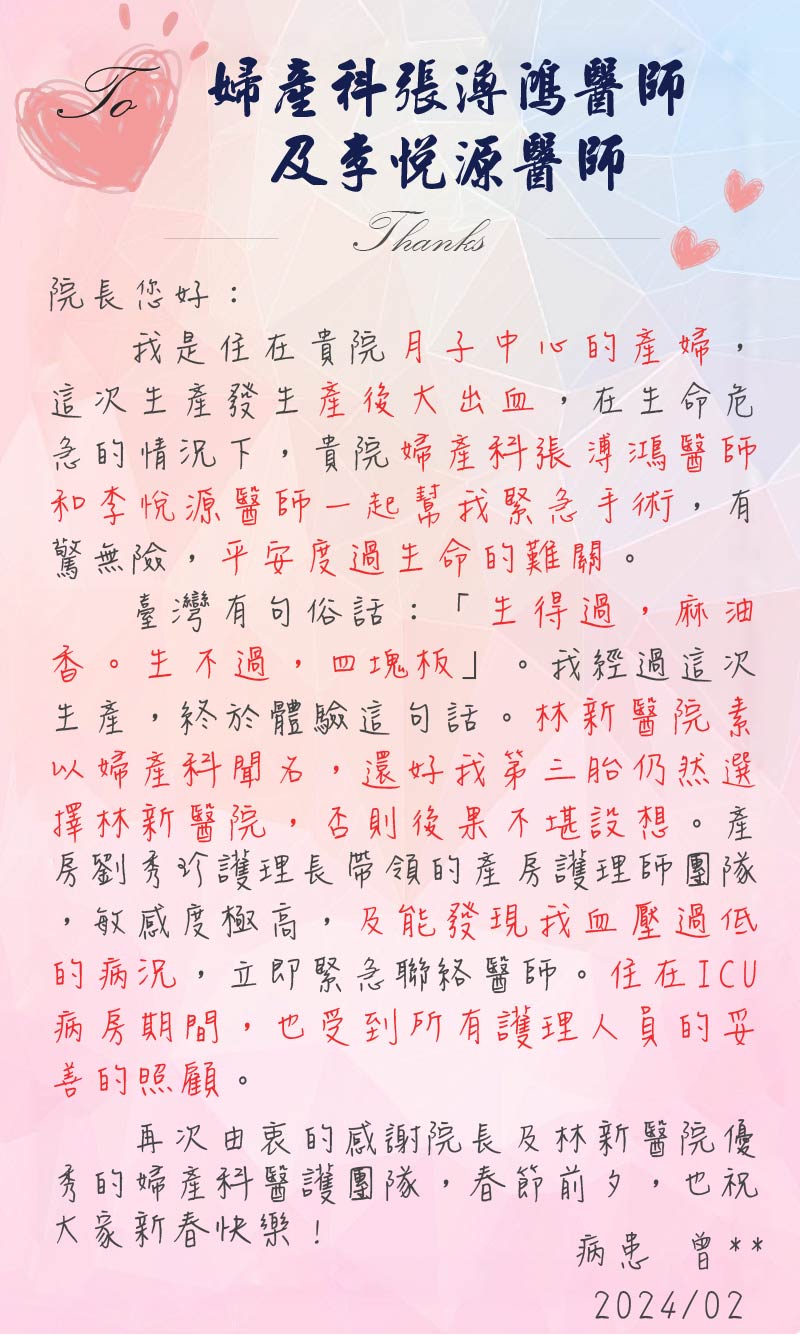 To 婦產科張溥鴻醫師
及李悅源醫師
Thanks
院長您好：
我是住在貴院月子中心的產婦，
這次生產發生產後大出血，在生命危
急的情況下，貴院婦產科張溥鴻醫師
和李悅源醫師一起幫我緊急手術，有
驚無險，平安度過生命的難關。
臺灣有句俗話：「生得過，麻油
香。生不過，四塊板」。我經過這次
生產，終於體驗這句話。林新醫院素
以婦產科聞名，還好我第三胎仍然選
擇林新醫院，否則後果不堪設想。產
房劉秀珍護理長帶領的產房護理師團隊
，敏感度極高，及能發現我血壓過低
的病況，立即緊急聯絡醫師。住在ICU
病房期間，也受到所有護理人員的妥
善的照顧。
再次由衷的感謝院長及林新醫院優
秀的婦產科醫護團隊，春節前夕，也祝
大家新春快樂！
病患 曾**
2024/02